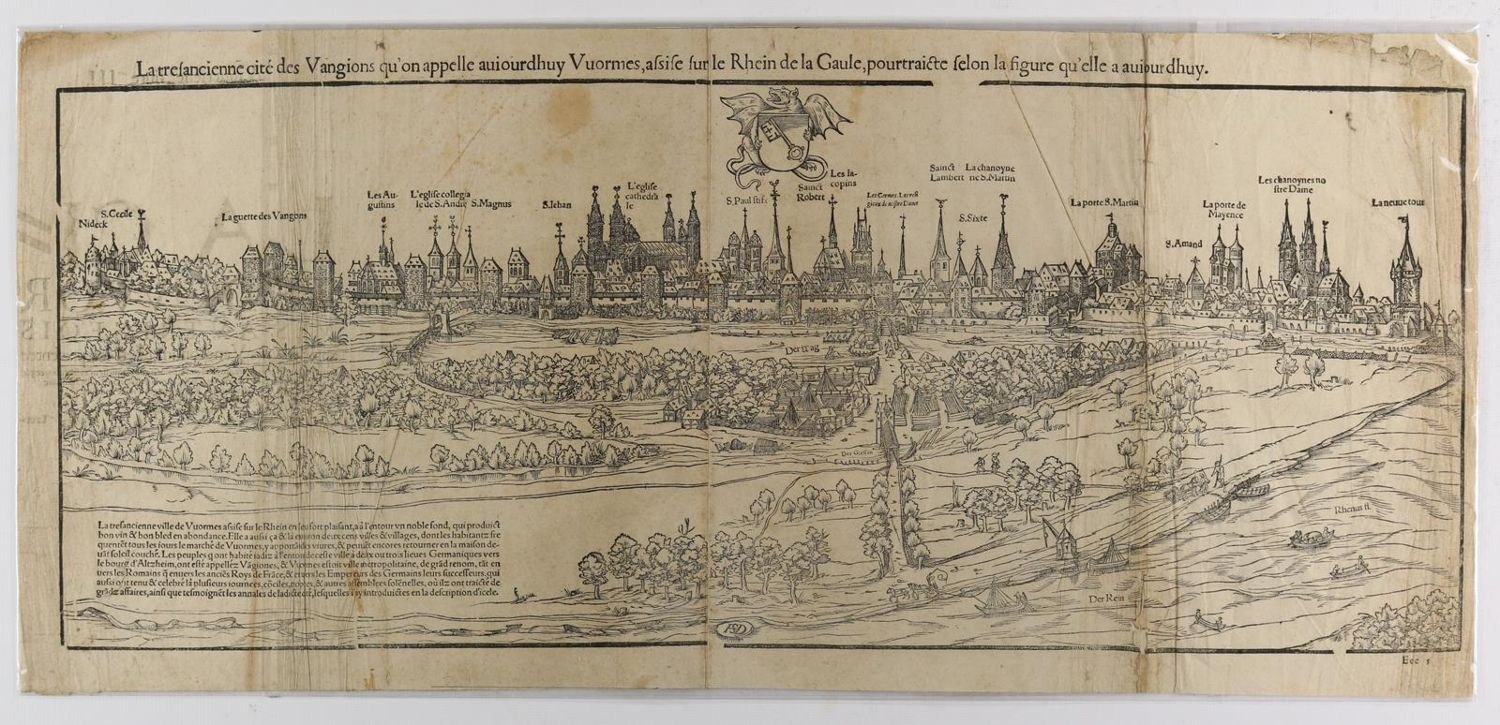 La tresancienne cité des Vangions qu'on appelle auiourdhuy Vuormes, assise sur le Rhein de la Gaule, pourtraicte selon la figure qu'elle a auiourdhuy.
S. Cecile
Nideck
La guette des Vangons
Les Au-
gustins
L'eglise collegia
le de S. André
S. Magnus
S. Iehan
L'eglise
cathedra
le
S. Paul
Sainct
Robert
Les Ia-
copins
Les Carmes.
Sainct
Lambert
La chanoyne
rie S. Martin
S. Sixte
La porte S. Martin
S. Amand
La porte de
Mayence
Les chanoynes no
stre Dame
La neuue tour
Der
La tresancienne ville de Vuormes assise sur le Rhein en lieu fort plaisant, a à l'entour vn noble fond, qui produict
bon vin & bon bled en abondance. Elle a aussi ça & là enuiron deux cens villes & villages, dont les habitantz fre
quentēt tous les iours le marché de Vuormes, y apportās viures, & peuuēt encores retourner en la maison de-
uāt soleil couché. Les peuples qui ont habité iadiz à l'entour de ceste ville à deux ou trois lieues Germaniques vers
le bourg d'Altzheim, ont esté appellez Vāgiones, & Vuormes estoit ville metropolitaine, de grād renom, tāt en
uers les Romains q enuers les anciēs Roys de Frāce, & enuers les Empereurs des Germains leurs successeurs, qui
aussi ont tenu & celebré là plusieurs iournees, cōciles, & autres assemblees solēnelles, où ilz ont traicté de
grādz affaires, ainsi que tesmoignēt les annales de ladicte cité, lesquelles introduictes en la description d'icele.
Rhenus fl.
Der Rein
HSD
Eee 5